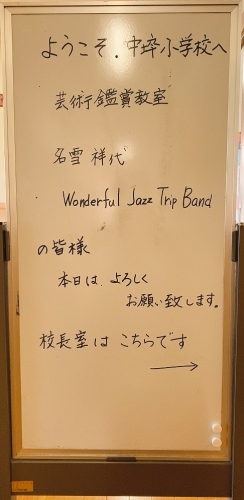 ようこそ、中卒小学校へ
芸術鑑賞教室
名雪 祥代
Wonderful Jazz Trip Band
の皆様
本日は、よろしく
お願い致します。
校長室は こちらです
→